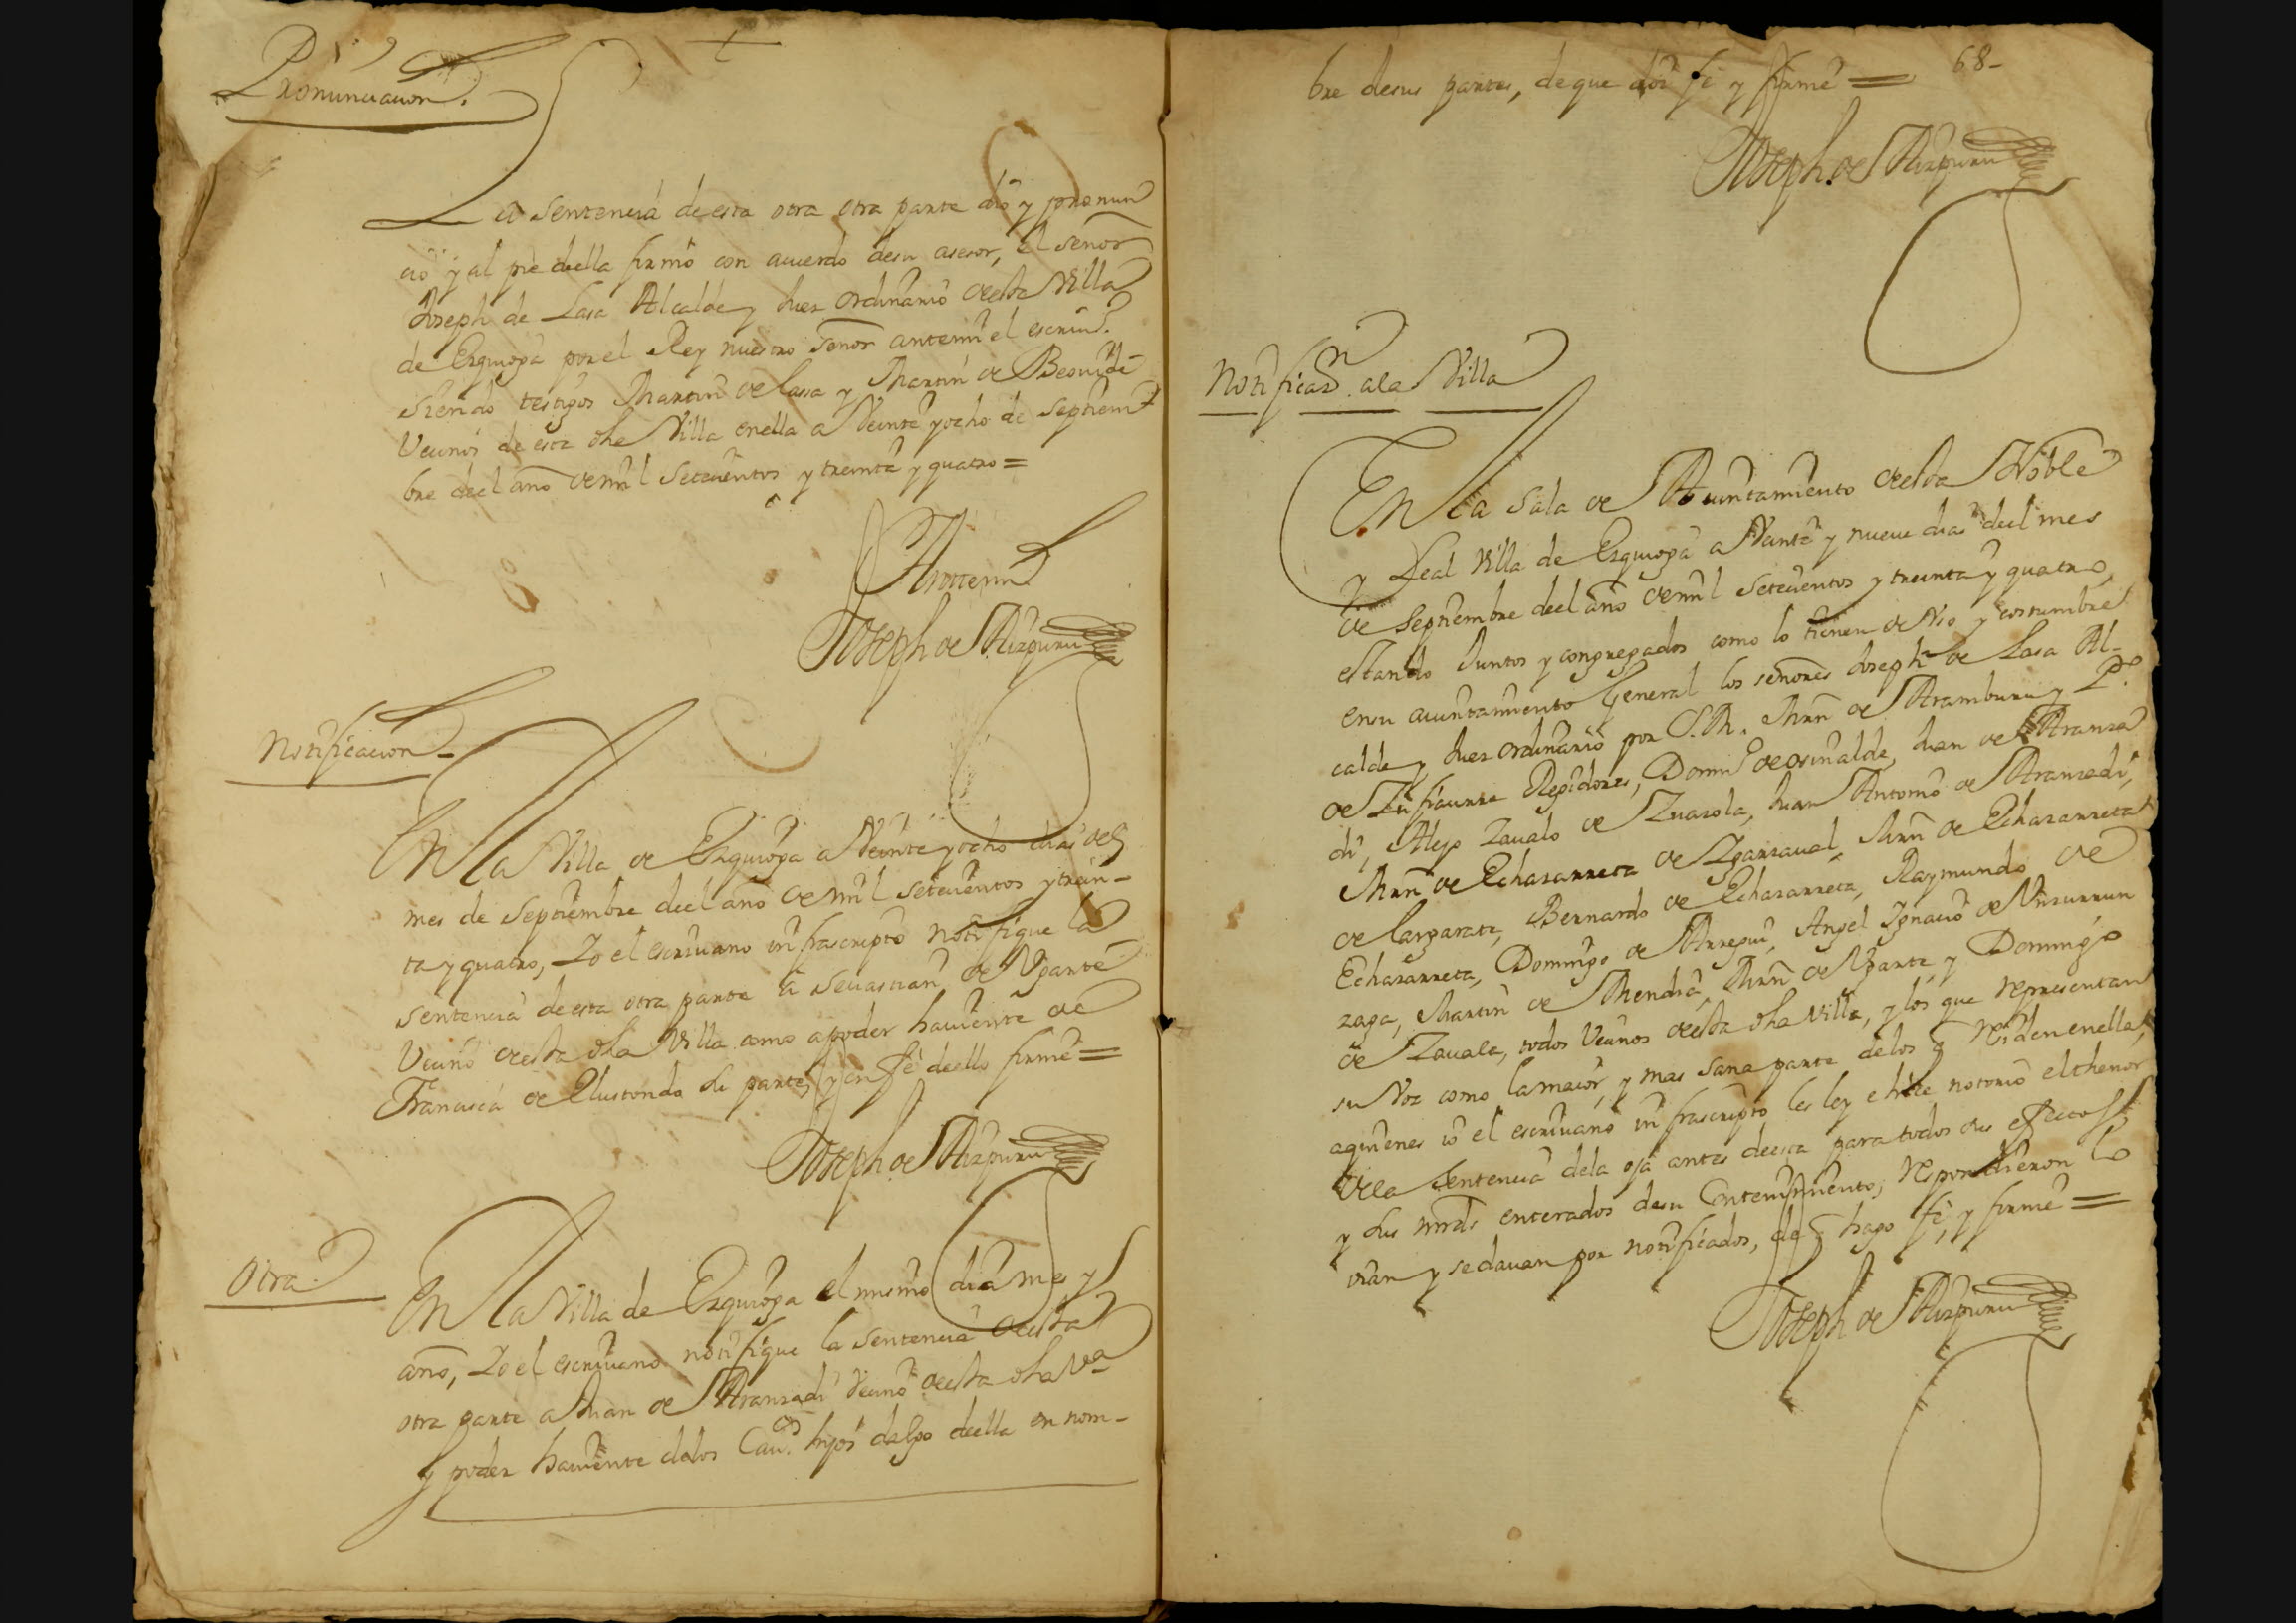 Pronunciacion.
La Sentencia de esta otra otra parte dio y pronun
cio y al pie deella firmó con acuerdo desu asesor, el señor
Joseph de Lasa Alcalde y Juez ordinario deesta Villa
de Ezquioga por el Rey nuestro Señor antemi el escriuº.
siendo testigos Martin de Lasa y Martin de
Vecinos de esta dha Villa enella a Veinte yocho de Septiem
bre deel año demil Setecientos y treinta y quatro=
Antemi
Joseph de Aizpuru
Notificacion
En la Villa de Ezquioga a Veinte yocho dias del
mes de Septiembre deel año de mil setecientos ytrein-
ta y quatro, Yo el escriuano infrascripto notifique la
sentencia de esta otra parte a Seuastian de Vgarte
Vecino deesta dha Villa como apoder hauiente de
Francisca de Elustondo su parte, y en fé deello firmé=
Joseph de Aizpuru
Otra
En la Villa de Ezquioga el mismo dia mes y
año, Yo el escriuano notifique la sentencia deesta
otra parte a Juan de Aranzadi Vecino deesta dha Vª
y poder hauiente delos Cauºs. hijos dalgo deella en nom-
68-
bre desus partes, deque doi fé y firmé=
Joseph de Aizpuru
Notificazn. ala Villa
En la Sala de Aiuntamiento deesta Noble
y Leal Villa de Ezquioga a Veinte y nueue dias deel mes
de Septiembre deel año demil Setecientos y treinta y quatro,
estando Juntos y congregados como lo tienen de Vso y costumbre
ensu aiuntamiento General los señores Joseph de Lasa Al-
calde y Juez ordinario por S.M. Mrn de Aramburu y Pº.
de Regidores, Domº de Juan de Aranza
di, Alejo Zaualo de Zuazola, Juan Antonio de Aranzadi,
Mrn de Echazarreta de Ygarzaual, Mrn de Echazarreta
de Largarate, Bernardo de Echazarreta, Raymundo de
Echazarreta, Domingo de Arregui, Angel Ignacio de
zaga, Martin de Mendia, Mrn de Vgarte, y Domingo
de Zauala, todos Vecinos deesta dha Villa, y los que representan
su Voz como lamaior, y mas sana parte delos q Residen enella,
aquienes io el escriuano infrascripto les ley e hize notorio elthenor
dela Sentencia dela oja antes deesta para todos sus efectos
y sus mrds enterados desu Contenimiento, respondieron lo
oian y sedauan por notificados, de q hago fé, y firmé=
Joseph de Aizpuru